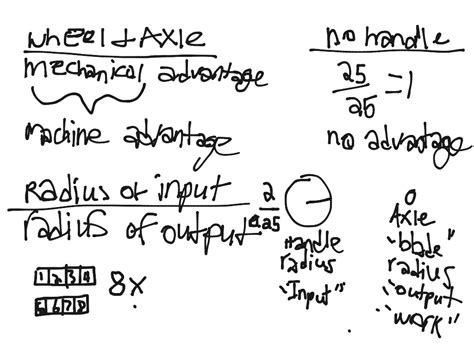 wheel & Axle
mechanical advantage
machine advantage
Radius of input
radius of output
2
.25
1 2 3 4
5 6 7 8
8x
no handle
25
25
=1
no advantage
Handle
radius
"Input"
Axle
"blade"
radius
"output
"work"